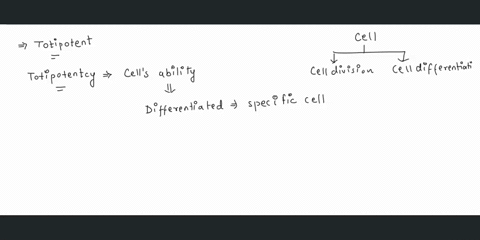 ⇒ Totipotent
Totipotentcy ⇒ Cell's ability
⇓
Differentiated ⇒ specific cell
Cell
Cell division Cell differentiati